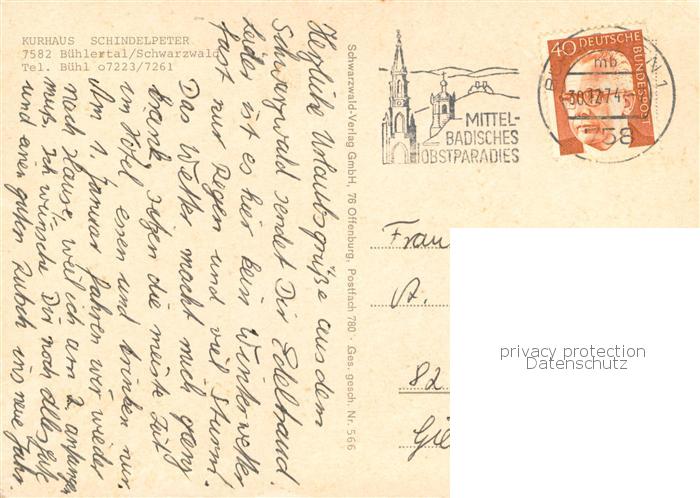 KURHAUS SCHINDELPETER
7582 Bühlertal/Schwarzwald
Tel. Bühl o7223/7261
Herzliche Urlaubsgrüße aus dem
Schwarzwald sendet Dir Edeltraud.
Leider ist es hier kein Winterwetter
fast nur Regen und viel Sturm!
Das Wetter macht mich ganz
krank, sitzen die meiste Zeit
im Hotel essen und trinken nur.
Am 1. Januar fahren wir wieder
nach Hause, weil ich am 2. anfangen
muß. Ich wünsche Dir noch alles Gute
und einen guten Rutsch ins neue Jahr.
Schwarzwald-Verlag GmbH, 76 Offenburg, Postfach 780 · Ges. gesch. Nr. 566
MITTEL-
BADISCHES
OBSTPARADIES
mb
30.12.74
758
40 DEUTSCHE BUNDESPOST
Frau
A.
82
Gie
privacy protection
Datenschutz